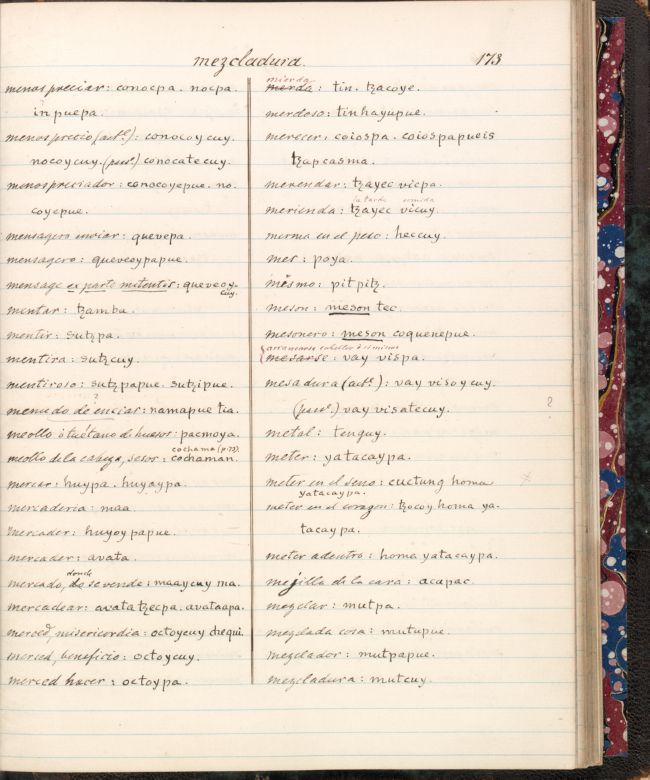 mezcladura.
173
menospreciar: conocpa. nocpa.
inpuepa.
menosprecio (act.º): conocoycuy.
nocoycuy. (pass.º) conocatecuy.
menospreciador: conocoyepue. no.
coyepue.
mensagero enviar: quevepa.
mensagero: queveoypapue.
mensage ex parte mitentis: queveoy-
cuy.
mentar: tzamba.
mentir: sutzpa.
mentira: sutzcuy.
mentiroso: sutzpapue. sutzipue.
?
menudo de enciar: namapue tia.
meollo ò tuetano de huesos: pacmoya.
cochama (p. 73).
meollo de la cabeza, sesos: cochaman.
mercar: huypa. huyaypa.
mercaderia: maa
mercader: huyoypapue.
mercader: avata.
donde
mercado, do se vende: maaycuy ma.
mercadear: avata tzecpa. avataapa.
merced, misericordia: octoycuy chequi.
merced, beneficio: octoycuy.
merced hacer: octoypa.
mierda
merda: tin. tzacoye.
merdoso: tinhayupue.
merecer: coiospa. coiospapueis
tzapcasma.
merendar: tzayec vicpa.
la tarde comida
merienda: tzayec vicuy.
merma en el peso: heccuy.
mes: poya.
mesmo: pitpitz.
meson: meson tec.
mesonero: meson coquenepue.
arrancarse cabellos ò si mismo
mesarse: vay vispa.
mesadura (act.º): vay visoycuy.
(pass.º) vay visatecuy.
?
metal: tenguy.
meter: yatacaypa.
meter en el seno: cuctung homa
yatacaypa.
meter en el corazon: tzocoy homa ya-
tacaypa.
meter adentro: homa yatacaypa.
mejilla de la cara: acapac.
mezclar: mutpa.
mezclada cosa: mutupue.
mezclador: mutpapue.
mezcladura: mutcuy.